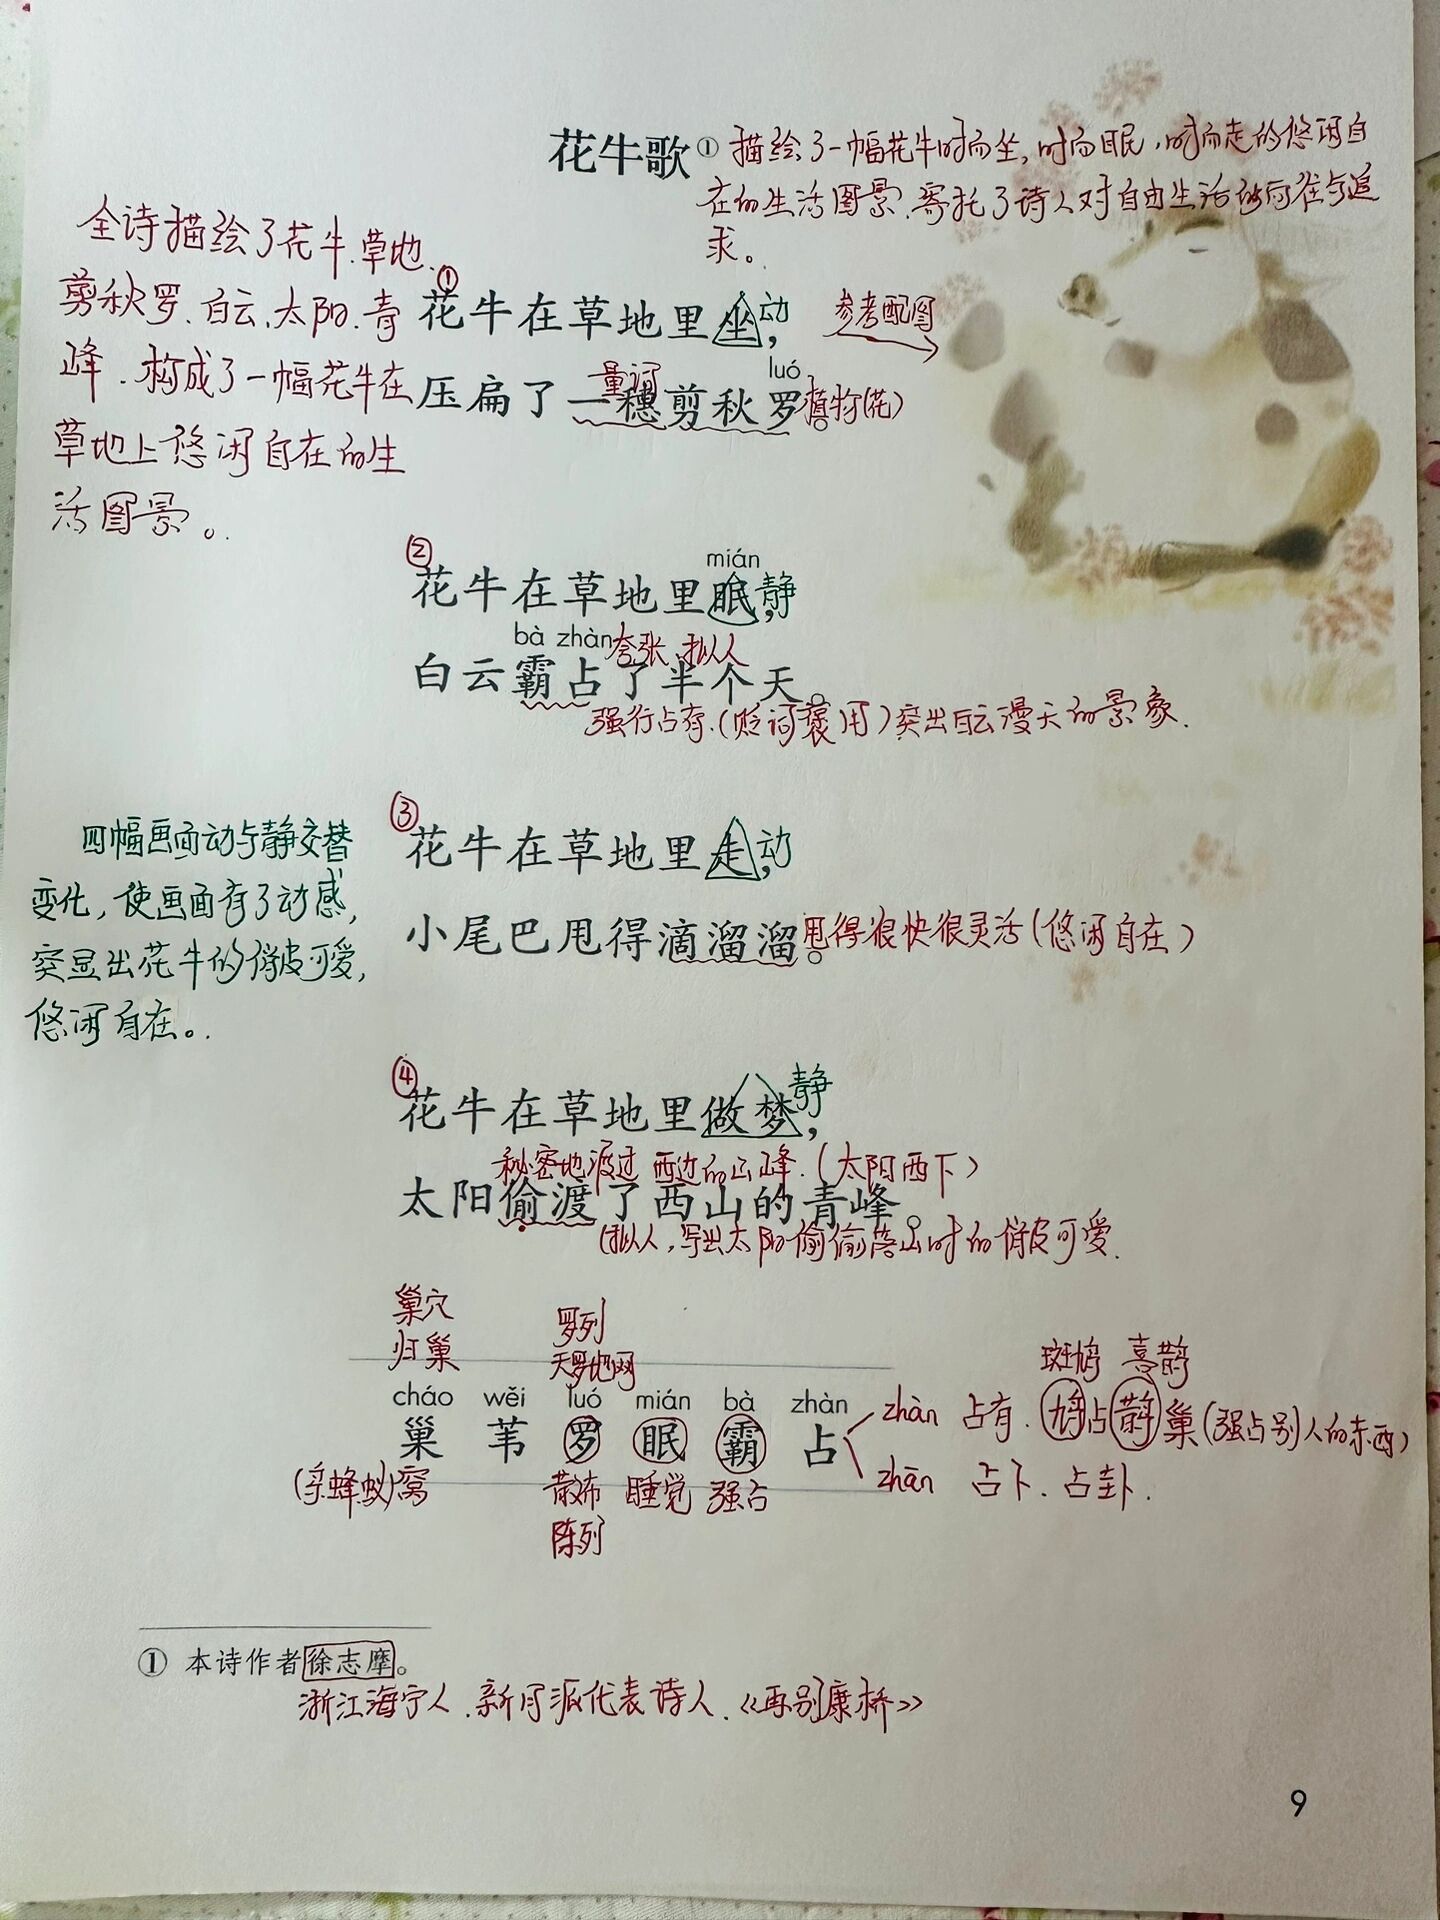 花牛歌① 描绘了一幅花牛时而坐,时而眠,时而走的悠闲自
在的生活图景.寄托了诗人对自由生活的向往与追
求。
全诗描绘了花牛.草地.
剪秋罗.白云.太阳.青
峰.构成了一幅花牛在
草地上悠闲自在的生
活图景。
①
花牛在草地里坐, 动
参考配图
量词 luó
压扁了一穗剪秋罗。 植物(花)
②
mián
花牛在草地里眠, 静
bà zhàn 夸张、拟人
白云霸占了半个天。
强行占有.(贬词褒用)突出白云漫天的景象.
③
花牛在草地里走, 动
小尾巴甩得滴溜溜。 甩得很快很灵活(悠闲自在)
四幅画面动与静交替
变化,使画面有了动感,
突显出花牛的俏皮可爱,
悠闲自在。
④
花牛在草地里做梦, 静
秘密地渡过 西边的山峰.(太阳西下)
太阳偷渡了西山的青峰。
(拟人,写出太阳偷偷落山时的俏皮可爱.
巢穴 罗列
归巢 天罗地网 斑鸠 喜鹊
cháo wěi luó mián bà zhàn
巢 苇 罗 眠 霸 占
zhàn 占有.鸠占鹊巢(强占别人的东西)
zhān 占卜.占卦.
(鸟蜂蚁)窝 散布 睡觉 强占
陈列
① 本诗作者徐志摩。
浙江海宁人.新月派代表诗人.《再别康桥》
9